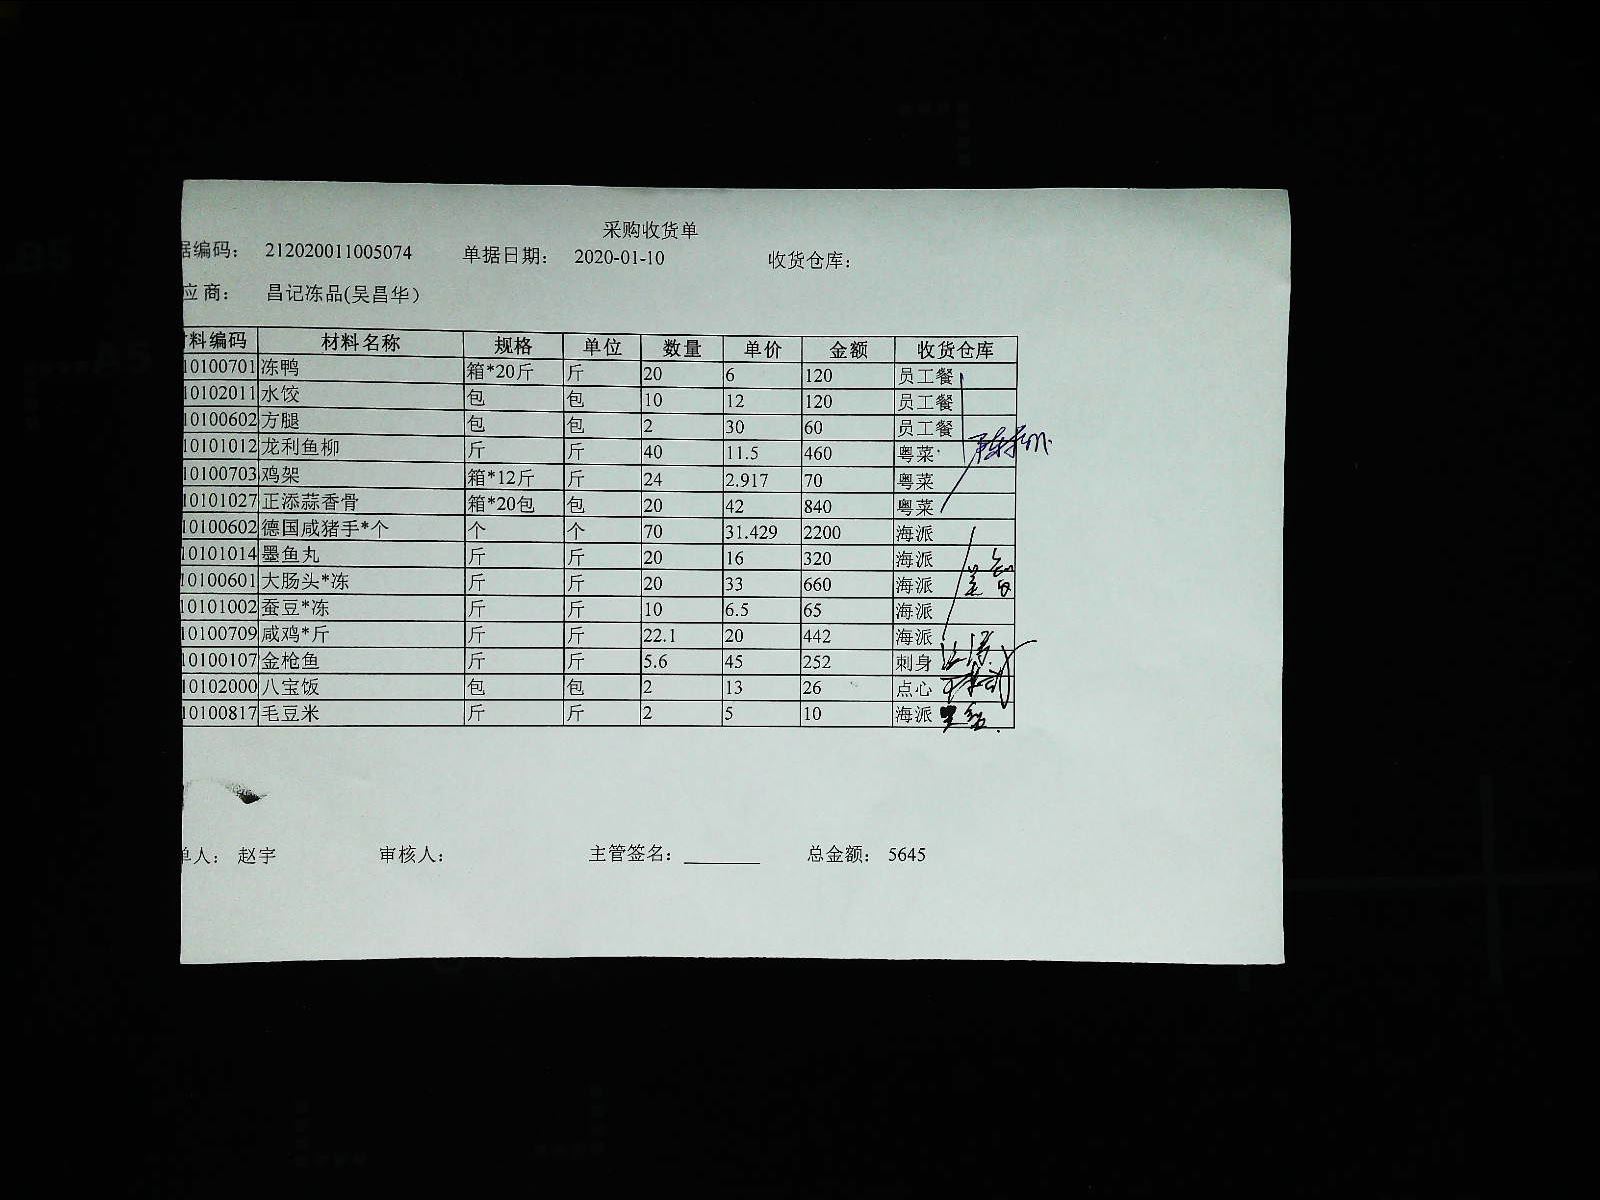 采购收货单
据编码： 212020011005074 单据日期： 2020-01-10 收货仓库：
应商： 昌记冻品(吴昌华）
料编码 材料名称 规格 单位 数量 单价 金额 收货仓库
10100701 冻鸭 箱*20斤 斤 20 6 120 员工餐
10102011 水饺 包 包 10 12 120 员工餐
10100602 方腿 包 包 2 30 60 员工餐
10101012 龙利鱼柳 斤 斤 40 11.5 460 粤菜
10100703 鸡架 箱*12斤 斤 24 2.917 70 粤菜
10101027 正添蒜香骨 箱*20包 包 20 42 840 粤菜
10100602 德国咸猪手*个 个 个 70 31.429 2200 海派
10101014 墨鱼丸 斤 斤 20 16 320 海派
10100601 大肠头*冻 斤 斤 20 33 660 海派
10101002 蚕豆*冻 斤 斤 10 6.5 65 海派
10100709 咸鸡*斤 斤 斤 22.1 20 442 海派
10100107 金枪鱼 斤 斤 5.6 45 252 刺身
10102000 八宝饭 包 包 2 13 26 点心
10100817 毛豆米 斤 斤 2 5 10 海派
单人： 赵宇 审核人： 主管签名：________ 总金额： 5645